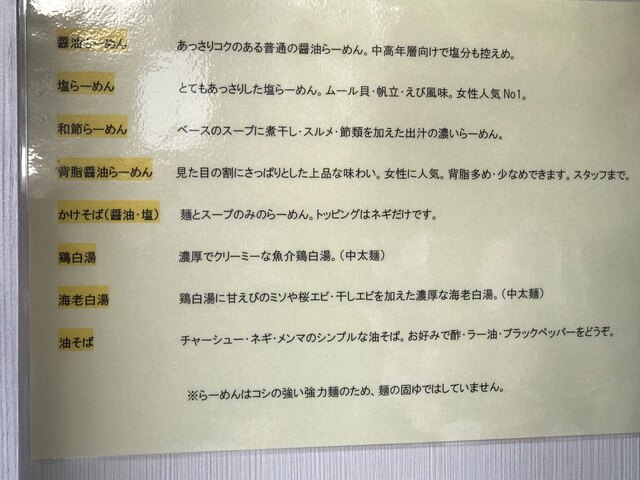 醤油らーめん　あっさりコクのある普通の醤油らーめん。中高年層向けで塩分も控えめ。
塩らーめん　とてもあっさりした塩らーめん。ムール貝・帆立・えび風味。女性人気No1。
和節らーめん　ベースのスープに煮干し・スルメ・節類を加えた出汁の濃いらーめん。
背脂醤油らーめん　見た目の割にさっぱりとした上品な味わい。女性に人気。背脂多め・少なめできます。スタッフまで。
かけそば(醤油・塩)　麺とスープのみのらーめん。トッピングはネギだけです。
鶏白湯　濃厚でクリーミーな魚介鶏白湯。(中太麺)
海老白湯　鶏白湯に甘えびのミソや桜エビ・干しエビを加えた濃厚な海老白湯。(中太麺)
油そば　チャーシュー・ネギ・メンマのシンプルな油そば。お好みで酢・ラー油・ブラックペッパーをどうぞ。
※らーめんはコシの強い強力麺のため、麺の固ゆではしていません。